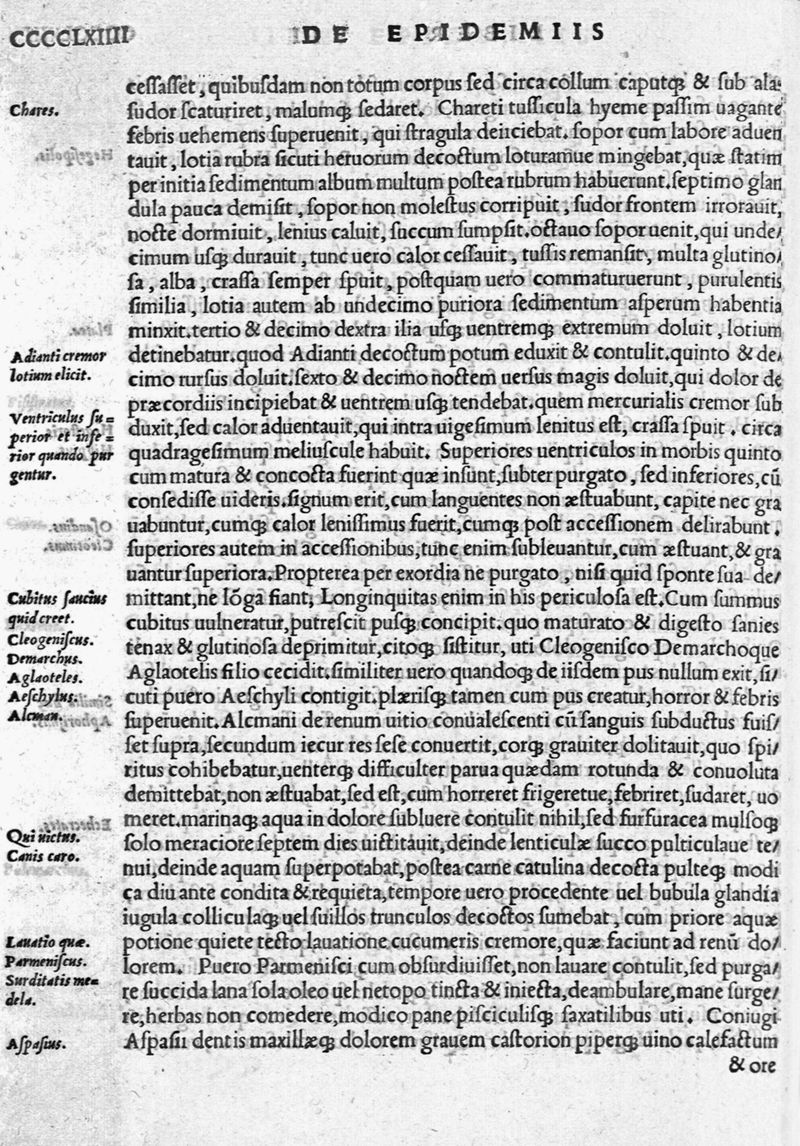 CCCCLXIIII DE EPIDEMIIS
ceſſaſſet, quibuſdam non totum corpus ſed circa collum caputq́ʒ & ſub ala⸗
Chares.
ſudor ſcaturiret, malumqʒ ſedaret. Chareti tuſſicula hyeme paſſim uagante
febris uehemens ſuperuenit, qui ſtragula deiiciebat. ſopor cum labore aduen
tauit, lotia rubra ſicuti heruorum decoctum loturamue mingebat, quæ ſtatim
per initia ſedimentum album multum poſtea rubrum habuerunt. ſeptimo glan
dula pauca demiſit, ſopor non moleſtus corripuit, ſudor frontem irrorauit,
nocte dormiuit, lenius caluit, ſuccum ſumpſit. octauo ſopor uenit, qui unde/
cimum uſqʒ durauit, tunc uero calor ceſſauit, tuſſis remanſit, multa glutino/
ſa, alba, craſſa ſemper ſpuit, poſtquam uero commaturuerunt, purulentis
ſimilia, lotia autem ab undecimo puriora ſedimentum aſperum habentia
minxit. tertio & decimo dextra ilia uſqʒ uentremqʒ extremum doluit, lotium
Adianti cremor
lotium elicit.
detinebatur. quod Adianti decoctum potum eduxit & contulit. quinto & de/
cimo rurſus doluit. ſexto & decimo noctem uerſus magis doluit, qui dolor de
præcordiis incipiebat & uentrem uſqʒ tendebat. quem mercurialis cremor ſub
Ventriculus ſu⸗
perior et infe⸗
rior quando pur
gentur.
duxit, ſed calor aduentauit, qui intra uigeſimum lenitus eſt, craſſa ſpuit. circa
quadrageſimum meliuſcule habuit. Superiores uentriculos in morbis quinto
cum matura & concocta fuerint quæ inſunt, ſubter purgato, ſed inferiores, cū
conſediſſe uideris. ſignum erit, cum languentes non æſtuabunt, capite nec gra
uabuntur, cumqʒ calor leniſſimus fuerit, cumqʒ poſt acceſſionem delirabunt.
ſuperiores autem in acceſſionibus, tunc enim ſubleuantur, cum æſtuant, & gra
uantur ſuperiora. Propterea per exordia ne purgato, niſi quid ſponte ſua de/
Cubitus ſaucius
quid creet.
mittant, ne lōga fiant; Longinquitas enim in his periculoſa eſt. Cum ſummus
cubitus uulneratur, putreſcit puſqʒ concipit. quo maturato & digeſto ſanies
Cleogeniſcus.
Demarchus.
tenax & glutinoſa deprimitur, citoqʒ ſiſtitur, uti Cleogeniſco Demarchoque
Aglaoteles.
Aglaotelis filio cecidit. ſimiliter uero quandoqʒ de iiſdem pus nullum exit, ſi/
Aeſchylus.
cuti puero Aeſchyli contigit. plæriſqʒ tamen cum pus creatur, horror & febris
Alcman.
ſuperuenit. Alcmani de renum uitio conualeſcenti cū ſanguis ſubductus fuiſ/
ſet ſupra, ſecundum iecur res ſeſe conuertit, corqʒ grauiter dolitauit, quo ſpi/
ritus cohibebatur, uenterqʒ difficulter parua quædam rotunda & conuoluta
demittebat, non æſtuabat, ſed eſt, cum horreret frigeretue, febriret, ſudaret, uo
meret. marinaqʒ aqua in dolore ſubluere contulit nihil, ſed furfuracea mulſoqʒ
Qui uictus.
Canis caro.
ſolo meraciore ſeptem dies uictitauit, deinde lenticulæ ſucco pulticulaue te/
nui, deinde aquam ſuperpotabat, poſtea carne catulina decocta pulteqʒ modi
ca diu ante condita & requieta, tempore uero procedente uel bubula glandia
iugula colliculaqʒ uel ſuillos trunculos decoctos ſumebat, cum priore aquæ
Lauatio quæ.
potione quiete tecto lauatione cucumeris cremore, quæ faciunt ad renū do/
Parmeniſcus.
Surditatis me⸗
dela.
lorem. Puero Parmeniſci cum obſurdiuiſſet, non lauare contulit, ſed purga/
re ſuccida lana ſola oleo uel netopo tincta & iniecta, deambulare, mane ſurge/
re, herbas non comedere, modico pane piſciculiſqʒ ſaxatilibus uti. Coniugi
Aſpaſius.
Aſpaſii dentis maxillæqʒ dolorem grauem caſtorion piperqʒ uino calefactum
& ore